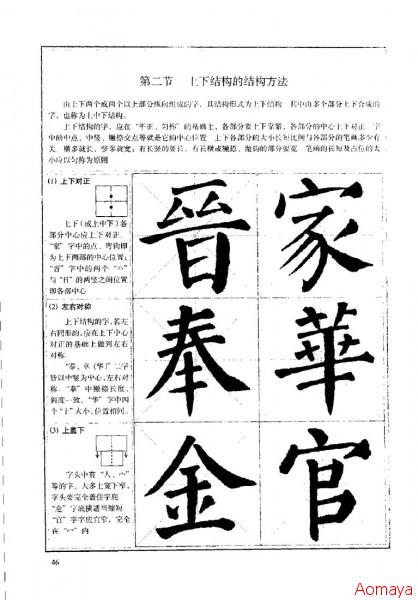 第二节　上下结构的结构方法
由上下两个或两个以上部分纵向组成的字，其结构形式为上下结构　其中由多个部分上下合成的
字，也称为上中下结构。
上下结构的字，应在“平正、匀称”的基础上，各部分要上下宽紧，各部分的中心上下对正　字
中的中点、中竖、撇捺交点等就是它的中心位置　上下各部分的大小长短比例与各部分的笔画多少有
关　横多就长，竖多就宽；有长竖的要长，有长横或撇捺、抛钩的部分要宽　笔画的长短及占位的大
小应以匀称为原则
(1) 上下对正
上下（或上中下）各
部分中心应上下对正
“家”字中的点、弯钩即
为上下两部的中心位置；
“晋”字中的两个“厶”
与“日”的两竖之间位置
即各部中心
晉
家
(2) 左右对称
上下结构的字，若左
右同形的，应在上下中心
对正的基础上做到左右
对称
“奉、華（华）”二字
皆以中竖为中心，左右对
称　“奉”中撇捺长度、
斜度一致，“华”字中四
个“十”大小、位置相同。
奉
華
(3) 上盖下
字头中有“人、宀”
等的字，大多上宽下窄，
字头要完全盖住字底
“金”字底横适当缩短
“官”字字底宜窄，完全
在“宀”内
金
官
46
Aomaya